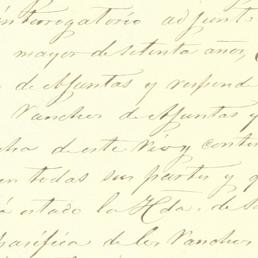 interrogatorio adjunto
mayor de setenta años,
de Apuntas y responde
Ranchos de Apuntas y
de este Rio y conti
en todas sus partes y q
á estado la Hda. de S
pacifica de los Ranchos